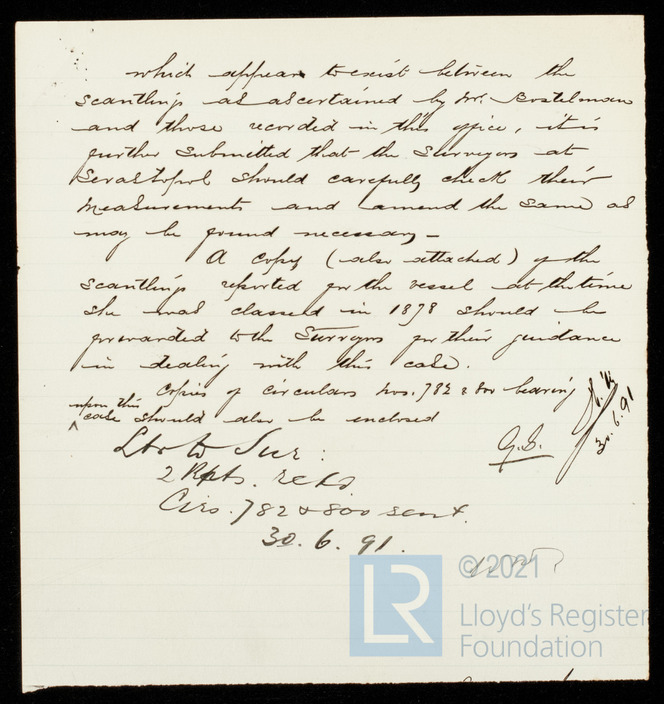 which appears to exist between the
scantlings as ascertained by Mr. Bostelman
and those recorded in this office, it is
further submitted that the Surveyors at
Sevastopol should carefully check their
measurements and amend the same as
may be found necessary –
A copy (also attached) of the
scantlings reported for the vessel at the time
she was classed in 1878 should be
forwarded to the Surveyors for their guidance
in dealing with this case.
Copies of circulars Nos. 782 & 800 bearing
upon this
case should also be enclosed
G.S.
30.6.91
Ltr to Sur:
2 Rpts. retd.
Circs. 782 & 800 sent.
30.6.91.
LR
© 2021
Lloyd's Register
Foundation